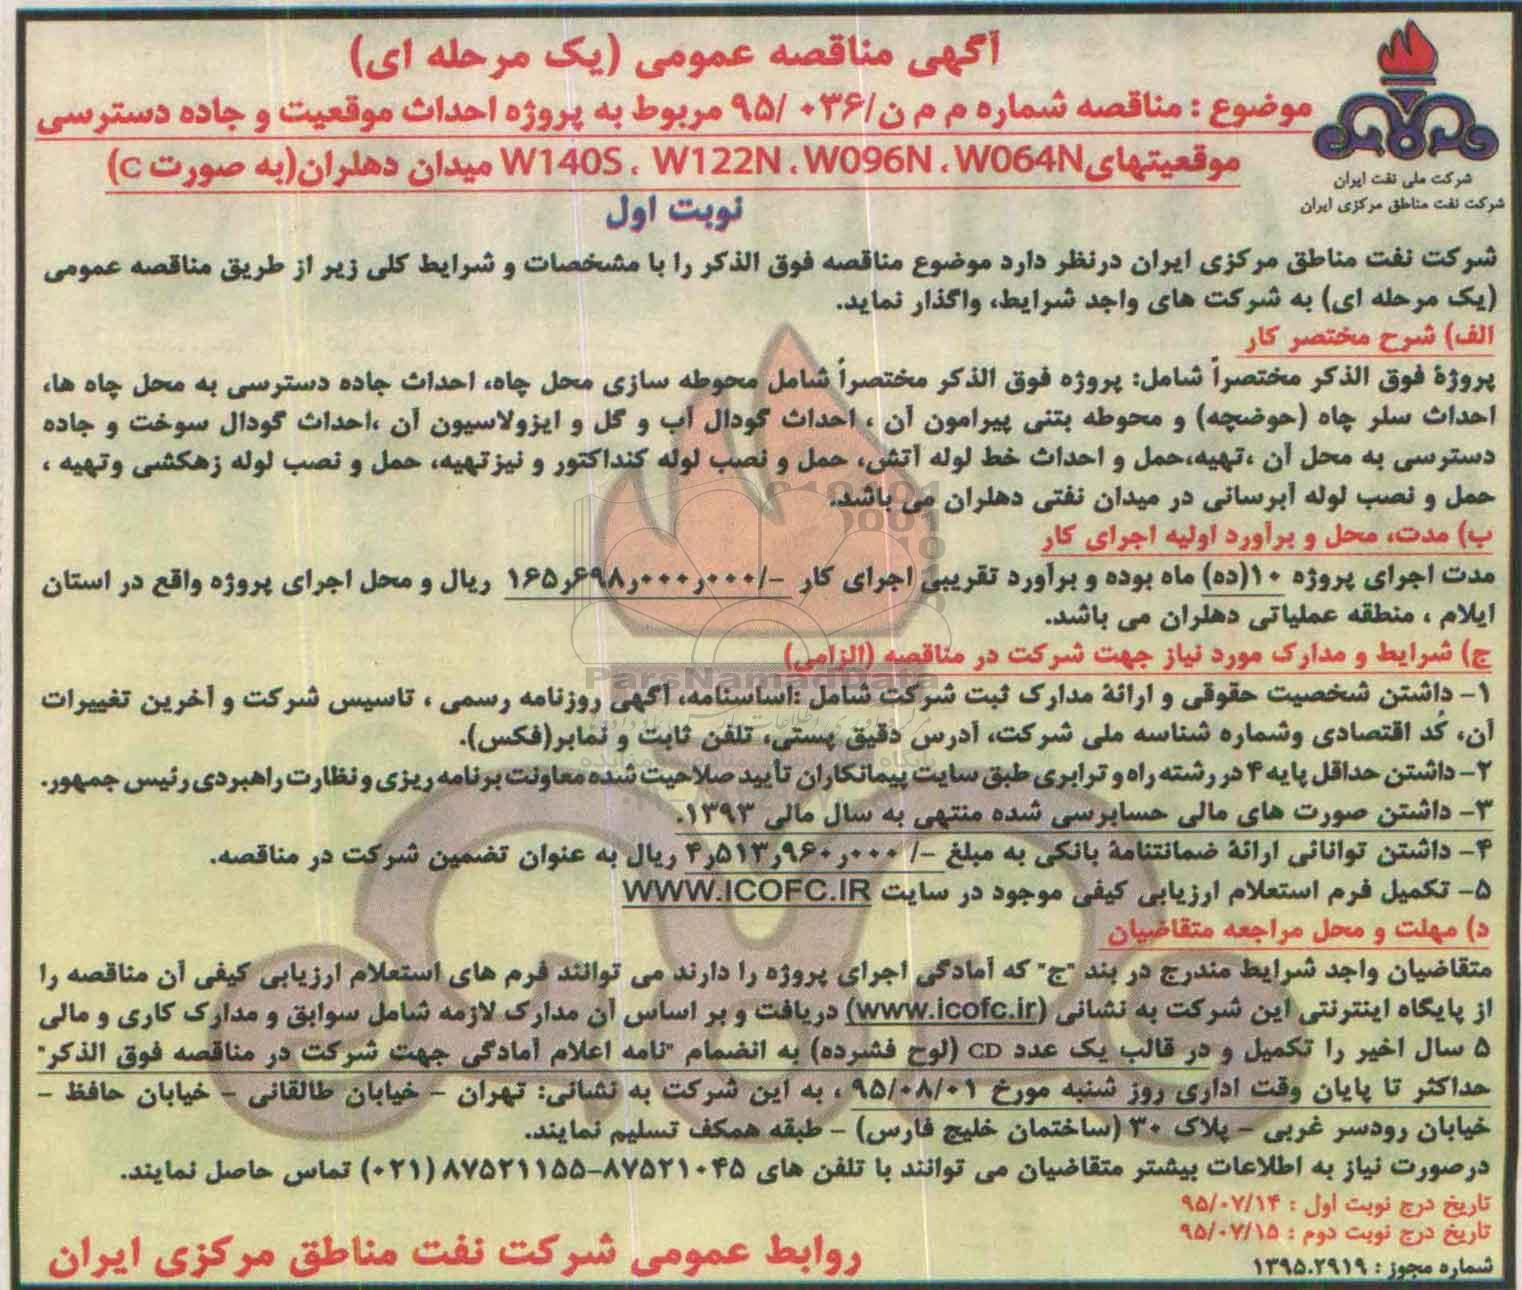 آگهی مناقصه عمومی (یک مرحله ای)
موضوع : مناقصه شماره م م ن/۰۳۶/ ۹۵ مربوط به پروژه احداث موقعیت و جاده دسترسی
موقعیتهایW064N ، W096N ، W122N ، W140S میدان دهلران(به صورت C)
نوبت اول
شرکت ملی نفت ایران
شرکت نفت مناطق مرکزی ایران
شرکت نفت مناطق مرکزی ایران درنظر دارد موضوع مناقصه فوق الذکر را با مشخصات و شرایط کلی زیر از طریق مناقصه عمومی
(یک مرحله ای) به شرکت های واجد شرایط، واگذار نماید.
الف) شرح مختصر کار
پروژۀ فوق الذکر مختصراً شامل: پروژه فوق الذکر مختصراً شامل محوطه سازی محل چاه، احداث جاده دسترسی به محل چاه ها،
احداث سلر چاه (حوضچه) و محوطه بتنی پیرامون آن ، احداث گودال آب و گل و ایزولاسیون آن ،احداث گودال سوخت و جاده
دسترسی به محل آن ،تهیه،حمل و احداث خط لوله آتش، حمل و نصب لوله کنداکتور و نیزتهیه، حمل و نصب لوله زهکشی وتهیه ،
حمل و نصب لوله آبرسانی در میدان نفتی دهلران می باشد.
ب) مدت، محل و برآورد اولیه اجرای کار
مدت اجرای پروژه ۱۰(ده) ماه بوده و برآورد تقریبی اجرای کار -/۱۶۵ر۶۹۸ر۰۰۰ر۰۰۰ ریال و محل اجرای پروژه واقع در استان
ایلام ، منطقه عملیاتی دهلران می باشد.
ج) شرایط و مدارک مورد نیاز جهت شرکت در مناقصه (الزامی)
ParsNamadData
۱- داشتن شخصیت حقوقی و ارائۀ مدارک ثبت شرکت شامل :اساسنامه، آگهی روزنامه رسمی ، تاسیس شرکت و آخرین تغییرات
آن، کُد اقتصادی وشماره شناسه ملی شرکت، آدرس دقیق پستی، تلفن ثابت و نمابر(فکس).
۲- داشتن حداقل پایه ۴ در رشته راه و ترابری طبق سایت پیمانکاران تأیید صلاحیت شده معاونت برنامه ریزی و نظارت راهبردی رئیس جمهور.
۳- داشتن صورت های مالی حسابرسی شده منتهی به سال مالی ۱۳۹۳.
۴- داشتن توانائی ارائۀ ضمانتنامۀ بانکی به مبلغ -/ ۴ر۵۱۳ر۹۶۰ر۰۰۰ ریال به عنوان تضمین شرکت در مناقصه.
۵- تکمیل فرم استعلام ارزیابی کیفی موجود در سایت WWW.ICOFC.IR
د) مهلت و محل مراجعه متقاضیان
متقاضیان واجد شرایط مندرج در بند "ج" که آمادگی اجرای پروژه را دارند می توانند فرم های استعلام ارزیابی کیفی آن مناقصه را
از پایگاه اینترنتی این شرکت به نشانی (www.icofc.ir) دریافت و بر اساس آن مدارک لازمه شامل سوابق و مدارک کاری و مالی
۵ سال اخیر را تکمیل و در قالب یک عدد CD (لوح فشرده) به انضمام "نامه اعلام آمادگی جهت شرکت در مناقصه فوق الذکر"
حداکثر تا پایان وقت اداری روز شنبه مورخ ۹۵/۰۸/۰۱ ، به این شرکت به نشانی: تهران - خیابان طالقانی - خیابان حافظ -
خیابان رودسر غربی - پلاک ۳۰ (ساختمان خلیج فارس) - طبقه همکف تسلیم نمایند.
درصورت نیاز به اطلاعات بیشتر متقاضیان می توانند با تلفن های ۸۷۵۲۱۰۴۵-۸۷۵۲۱۱۵۵ (۰۲۱) تماس حاصل نمایند.
تاریخ درج نوبت اول : ۹۵/۰۷/۱۴
تاریخ درج نوبت دوم : ۹۵/۰۷/۱۵
شماره مجوز : ۱۳۹۵.۲۹۱۹
روابط عمومی شرکت نفت مناطق مرکزی ایران